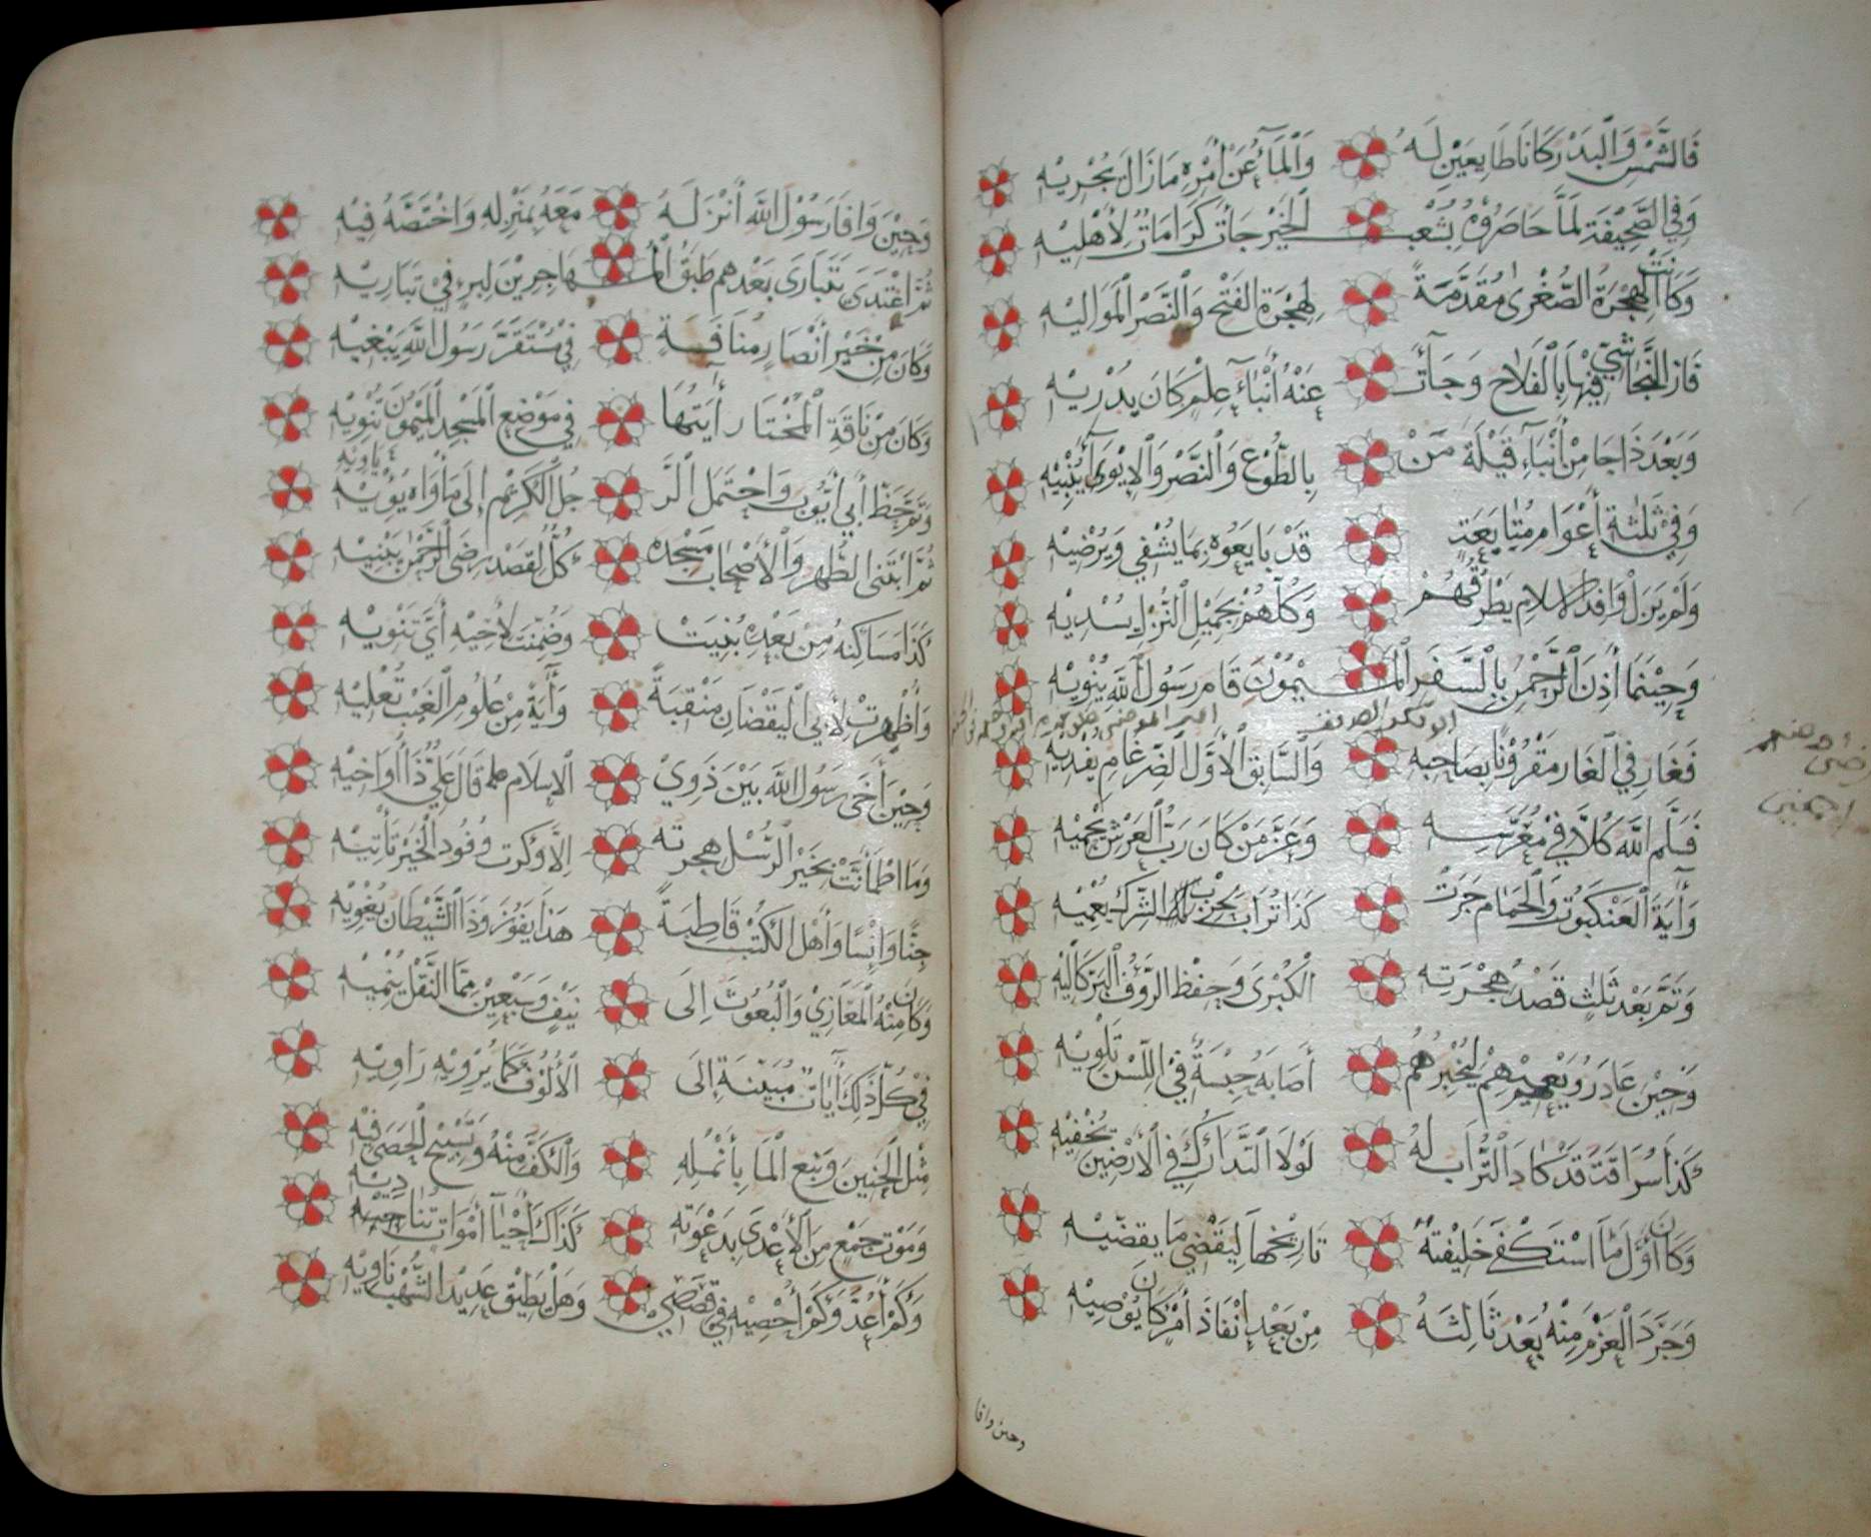 فَالشَّمْسُ وَالْبَدْرُ كَانَا طَايِعَيْنِ لَهُ وَالْمَآءُ عَنْ أَمْرِهِ مَا زَالَ يُجْرِيْهِ
وَفِي الصَّحِيْفَةِ لَمَّا حَاصَرُوْهُ بِشُعْبِ الْخَيْرِ جَأتْ كَرَامَاتٌ لِأَهْلِيْهِ
وَكَانَتِ الْهِجْرَةُ الصُّغْرَى مُقَدَّمَةً لِهِجْرَةِ الْفَتْحِ وَالنَّصْرِ الْمَوَالِيْهِ
فَازَ النَّجَاشِيُّ فِيْهَا بِالْفَلَاحِ وَجَآئَتْ عَنْهُ أَنْبَآءُ عِلْمٍ كَانَ يَدْرِيْهِ
وَبَعْدَ ذَا جَا مِنْ أَنْبَآءِ قَيْلَةَ مَنْ بِالطَّوْعِ وَالنَّصْرِ وَالْإِيْوَآءِ يُنْبِيْهِ
وَفِيْ ثَلٰثَةِ أَعْوَامٍ مُتَابَعَةٍ قَدْ بَايَعُوْهُ بِمَا يَشْفِي وَيُرْضِيْهِ
وَلَمْ يَزَلْ وَافِدُ الْإِسْلَامِ يَطْرُقُهُمْ وَكُلُّهُمْ بِجَمِيْلِ النُّزْلِ يُسْدِيْهِ
وَحِيْنَمَا أَذِنَ الرَّحْمٰنُ بِالسَّفَرِ الْمَيْمُوْنِ قَامَ رَسُوْلُ اللهِ يَنْوِيْهِ
ابو بكر الصديق
فَغَارَ فِي الْغَارِ مَقْرُوْنًا بِصَاحِبِهِ وَالسَّابِقُ الْأَوَّلُ الضِّرْغَامُ يَفْدِيْهِ
رضي الله عنهم
اجمعين
فَسَلَّمَ اللهُ كُلًّا فِيْ مُعَرَّسِهِ وَعَزَّ مَنْ كَانَ رَبُّ الْعَرْشِ يَحْمِيْهِ
وَأٰيَةُ الْعَنْكَبُوْتِ وَالْحَمَامِ جَرَتْ كَذَا تُرَابٌ بِحِزْبِ الشِّرْكِ يُعْمِيْهِ
وَتَمَّ بَعْدَ ثَلٰثٍ قَصْدُ هِجْرَتِهِ الْكُبْرَى وَحِفْظُ الرَّؤُفِ الْبَرِّ كَالِيْهِ
وَحِيْنَ غَادَرَ وَيَعْمِيْهِمْ لِيُخْبِرَهُمْ أَصَابَهُ حِبْسَةٌ فِيْ اللِّسْنِ تَلْوِيْهِ
كَذَا سُرَاقَةُ قَدْ كَادَ التُّرَابُ لَهُ لَوْلَا التَّدَارُكُ فِي الْأَرْضِيْنَ يُخْفِيْهِ
وَكَانَ أَوَّلَ مَا اسْتَكْفَى خَلِيْفَتَهُ تَارِيْخُهَا لِيَقْضِيْ مَا يُقَضِّيْهِ
وَجَرَّدَ الْعَزْمَ مِنْهُ بَعْدَ ثَالِثَةٍ مِنْ بَعْدِ إِنْفَاذِ أَمْرٍ كَانَ يُوْصِيْهِ
وحين وافا
وَحِيْنَ وَافَا رَسُوْلُ اللهِ أَنْزَلَهُ مَعَهُ بِمَنْزِلِهِ وَاخْتَصَّهُ فِيْهِ
ثُمَّ اغْتَدَى يَتَبَارَى بَعْدَهُمْ طَبَقُ الْمُهَاجِرِيْنَ لِبِرٍّ فِيْ تَبَارِيْهِ
وَكَانَ مِنْ خَيْرِ أَنْصَارٍ مُنَافَسَةٌ فِيْ مُسْتَقَرِّ رَسُوْلِ اللهِ يَبْغِيْهِ
وَكَانَ مِنْ نَاقَةِ الْمُخْتَارِ أٰيَتُهَا فِي مَوْضِعِ الْمَسْجِدِ الْمَيْمُوْنِ تَنْوِيْهِ
يَاْوِيْهِ
وَتَمَّ حَظُّ أَبِي أَيُّوْبَ وَاحْتَمَلَ الرَّحْلَ الْكَرِيْمَ إِلَى مَأْوَاهُ يُؤْيْهِ
ثُمَّ ابْتَنَى الطُّهْرُ وَالْأَصْحَابُ مَسْجِدَهُ كُلُّ الْقَصْدِ رِضَى الرَّحْمٰنِ يَبْنِيْهِ
كَذَا مَسَاكِنُهُ مِنْ بَعْدِهِ بُنِيَتْ وَضُمِّنَتْ لِأَخِيْهِ أَيَّ تَنْوِيْهِ
وَأَظْهَرَتْ لِأَبِي الْيَقْضَانِ مَنْقَبَةً وَأٰيَةً مِنْ عُلُوْمِ الْغَيْبِ تُعْلِيْهِ
وَحِيْنَ أٰخَى رَسُوْلُ اللهِ بَيْنَ ذَوِيْ الْإِسْلَامِ قَالَ عَلِيٌّ ذَا أُوَاخِيْهِ
وَمَا اطْمَأَنَّتْ بِخَيْرِ الرُّسْلِ هِجْرَتُهُ إِلَّا وَكَرَتْ وُفُوْدُ الْخَيْرِ تَأْتِيْهِ
جِنًّا وَإِنْسًا وَأَهْلُ الْكُتْبِ قَاطِبَةً هَذَا يَفُوْزُ وَذَا الشَّيْطَانُ يُغْوِيْهِ
وَكَانَ مِنْهُ الْمَغَازِيْ وَالْبُعُوْثُ إِلَى نَيْفٍ وَسَبْعِيْنَ مِمَّا النَّقْلُ يُنْمِيْهِ
فِيْ كُلِّ ذٰلِكَ أٰيَاتٌ مُبَيَّنَةٌ إِلَى الْأُلُوْفِ كَمَا يُرْوِيْهِ رَاوِيْهِ
مِثْلُ الْحَنِيْنِ وَنَبْعِ الْمَا بِأَنْمُلِهِ وَالْكَفُّ مِنْهُ وَتَسْبِيْحُ الْحَصَى فِيْهِ
وَمَوْتُ جَمْعٍ مِنَ الْأَعْدَى بِدَعْوَتِهِ كَذَاكَ أَحْيَآ أَمْوَاتٍ تُنَاجِيْهِ
وَكَمْ أَعُدُّ وَكَمْ أُحْصِيْهِ فِي قَصَصِيْ وَهَلْ يُطِيْقُ عَدِيْدَ الشُّهْبِ نَاوِيْهِ